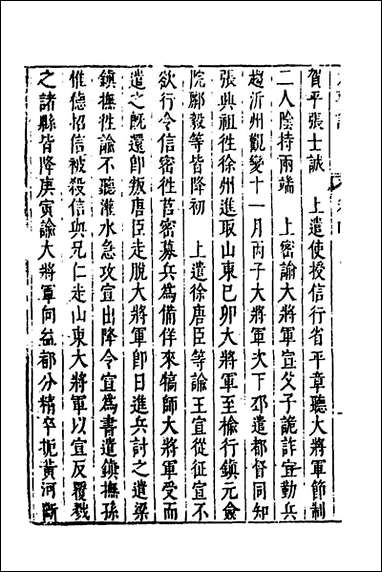 賀平張士誠　上遣使授信行省平章聽大將軍節制
二人陰持兩端　上密諭大將軍宣父子詭詐宜勤兵
趨沂州觀變十一月丙子大將軍次下邳遣都督同知
張興祖徃徐州進取山東巳卯大將軍至榆行鎮元僉
院酈毅等皆降初　上遣徐唐臣等諭王宣從征宣不
欲行令信密徃莒密募兵為備佯來犒師大將軍受而
遣之既還卽叛唐臣走脫大將軍卽日進兵討之遣梁
鎮撫徃諭不聽灌水急攻宣出降令宣為書遣鎮撫孫
惟德招信被殺信與兄仁走山東大將軍以宣反覆戮
之諸縣皆降庚寅諭大將軍向益都分精卒扼黃河斷